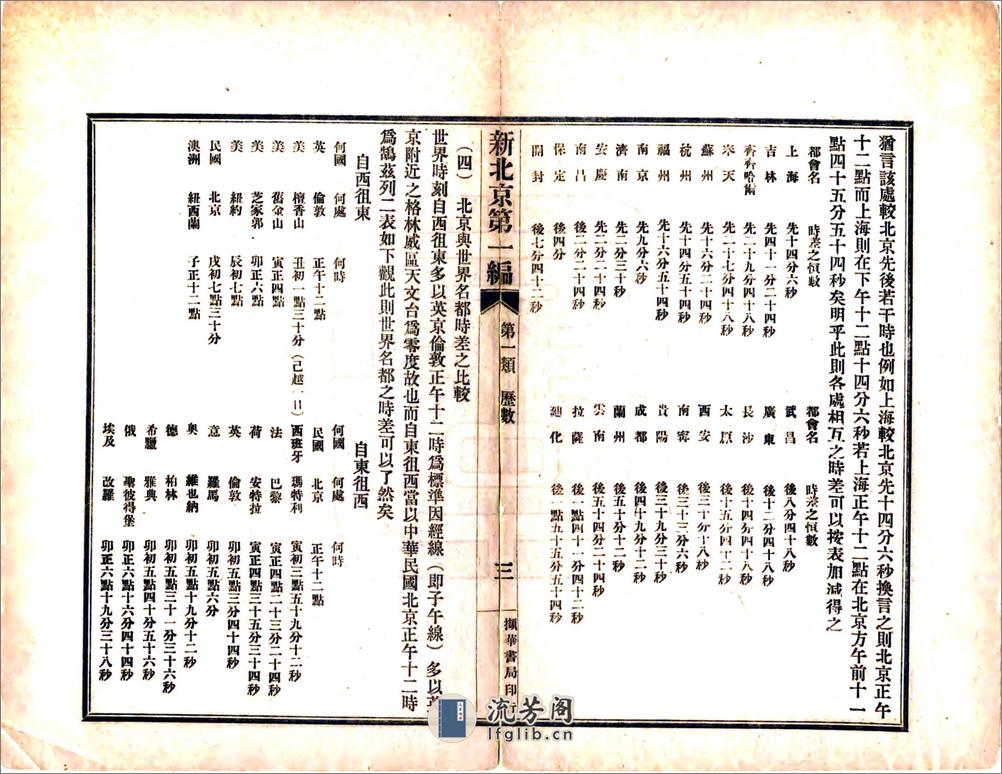 猶言該處較北京先後若干時也例如上海較北京先十四分六秒換言之則北京正午
十二點而上海則在下午十二點十四分六秒若上海正午十二點在北京方午前十一
點四十五分五十四秒矣明乎此則各處相互之時差可以按表加減得之
都會名 時差之恒數 都會名 時差之恒數
上海 先十四分六秒 武昌 後八分四十八秒
吉林 先四十一分二十四秒 廣東 後十二分四十八秒
齊齊哈爾 先二十九分四十八秒 長沙 後十四分四十八秒
奉天 先二十七分四十八秒 太原 後十五分四十二秒
蘇州 先十六分二十四秒 西安 後三十分十八秒
杭州 先十四分五十四秒 南寧 後三十三分六秒
福州 先十六分五十四秒 貴陽 後三十九分三十秒
南京 先九分十六秒 成都 後四十九分十二秒
濟南 先二分三十秒 蘭州 後五十分十二秒
安慶 先二分二十四秒 雲南 後五十四分二十四秒
南昌 後二分二十四秒 拉薩 後一點四十一分四十二秒
保定 後四分 廸化 後一點五十五分五十四秒
開封 後七分四十二秒
新北京第一編
第一類 歷數
三
擷華書局印行
(四) 北京與世界名都時差之比較
世界時刻自西徂東多以英京倫敦正午十二時爲標準因經線(即子午線)多以英
京附近之格林威區天文台爲零度故也而自東徂西當以中華民國北京正午十二時
爲鵠茲列二表如下觀此則世界名都之時差可以了然矣
自西徂東 自東徂西
何國 何處 何時 何國 何處 何時
英 倫敦 正午十二點 民國 北京 正午十二點
美 檀香山 丑初一點三十分(己越一日) 西班牙 瑪特利 寅初三點五十九分十二秒
美 舊金山 寅正四點 法 巴黎 寅正四點二十三分二十四秒
美 芝家郭 卯正六點 荷 安特拉 寅正四點三十五分三十四秒
美 紐約 辰初七點 英 倫敦 卯初五點三分四十四秒
民國 北京 戌初七點三十分 意 羅馬 卯初五點六分
澳洲 紐西蘭 子正十二點 奥 維也納 卯初五點十九分十二秒
德 柏林 卯初五點三十一分三十六秒
希臘 雅典 卯初五點四十分五十六秒
俄 聖彼得堡 卯正六點十六分四十四秒
埃及 改羅 卯正六點十九分三十八秒
流芳阁
lfglib.cn